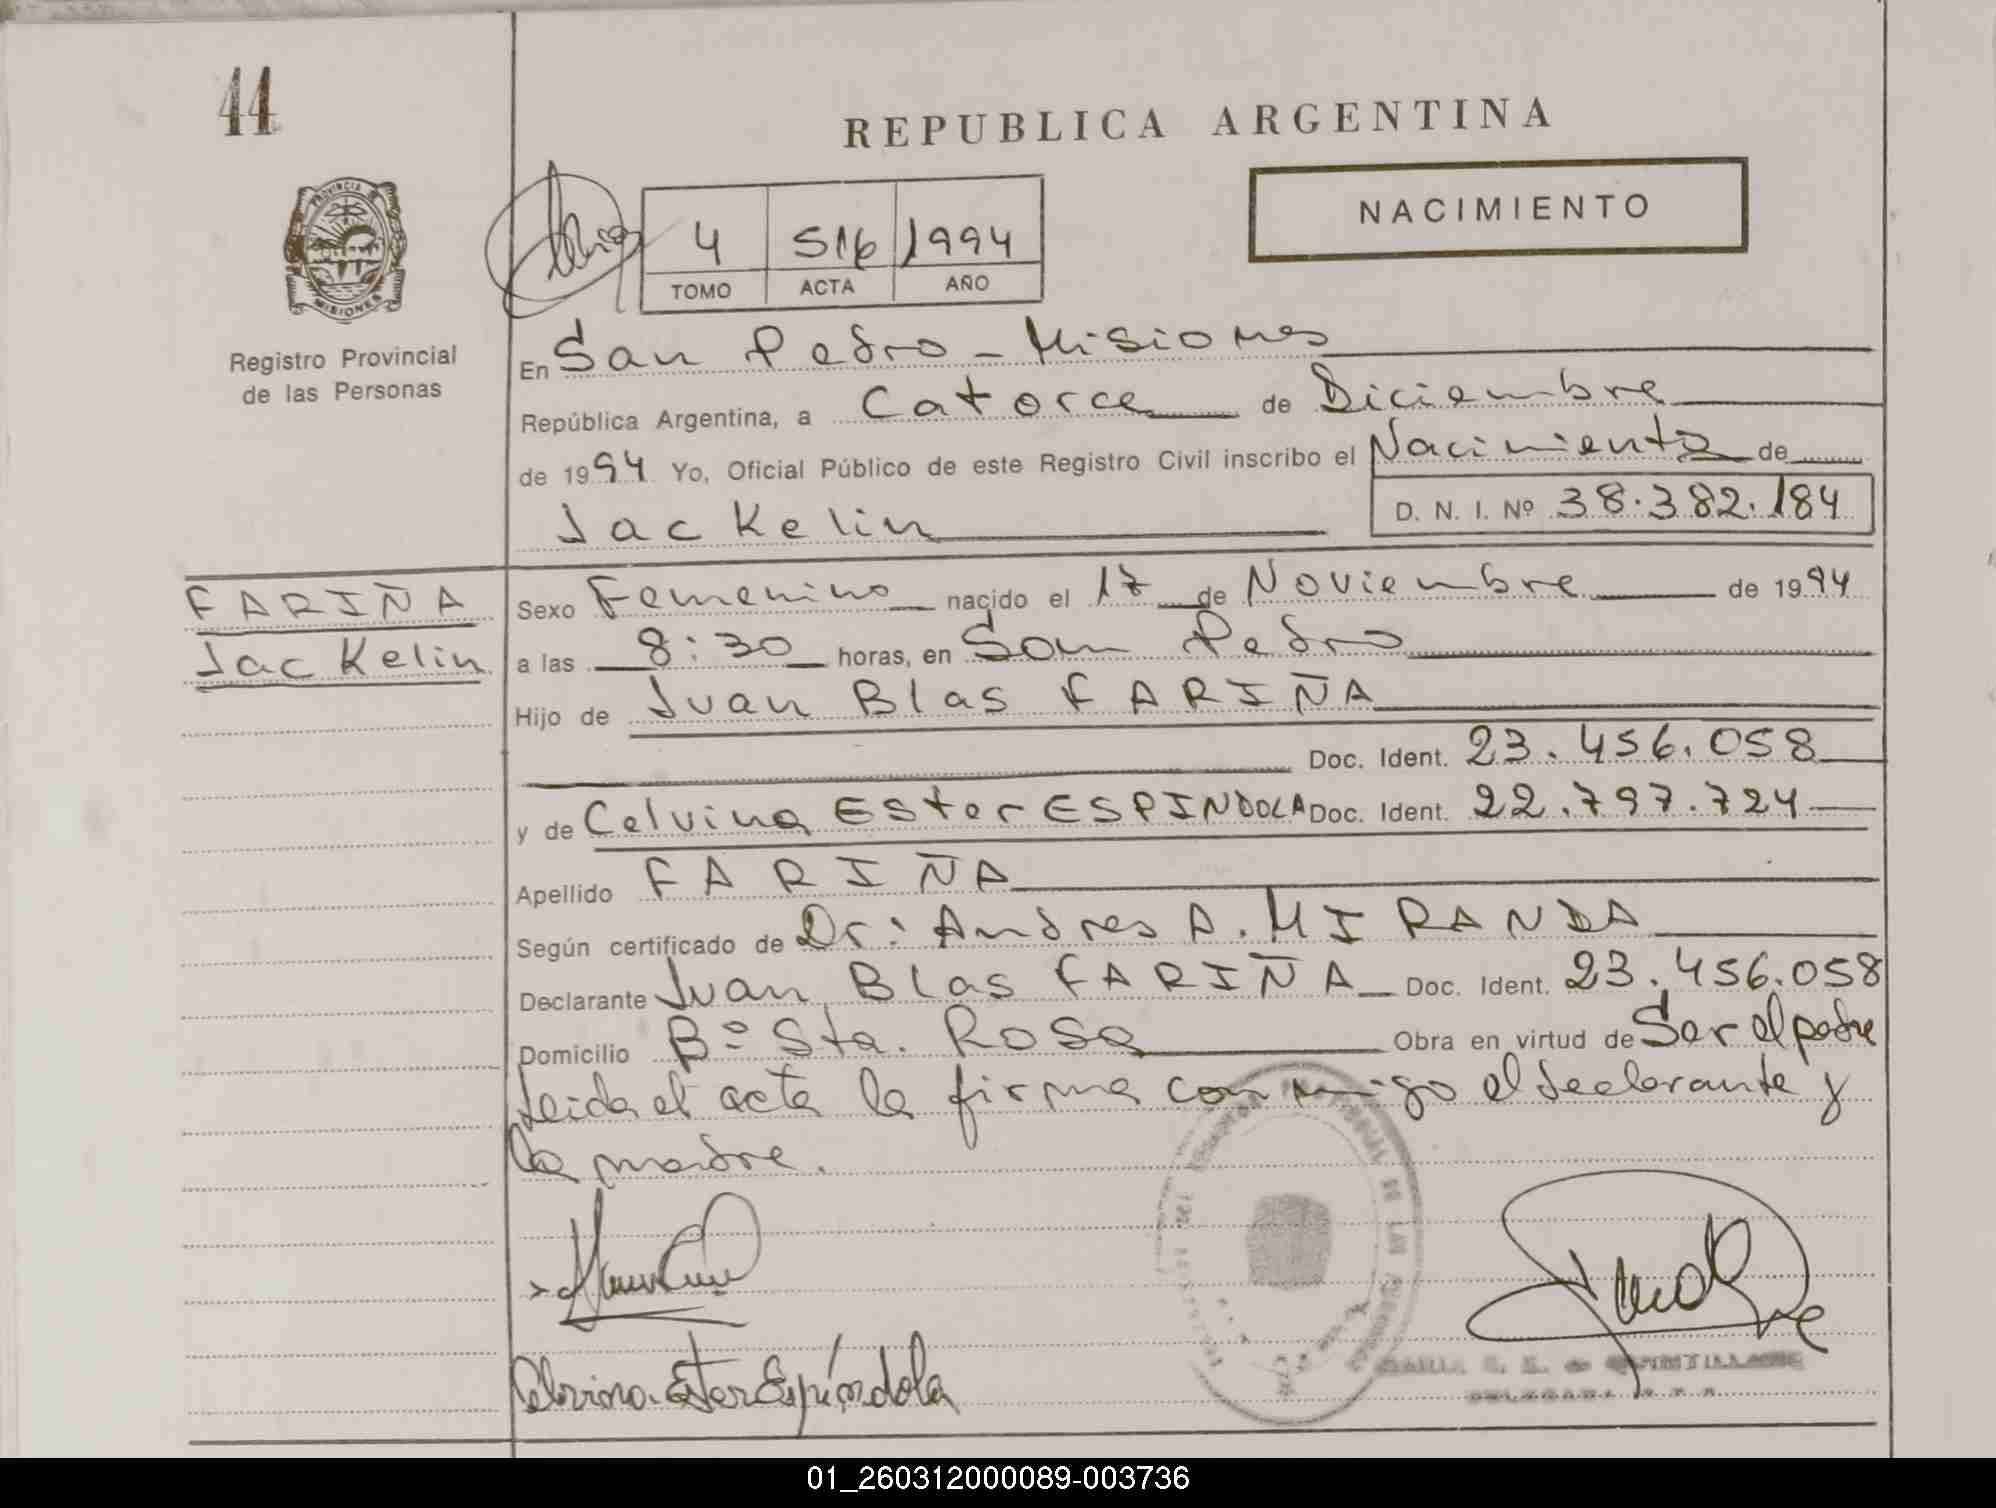 44
REPUBLICA ARGENTINA
NACIMIENTO
PROVINCIA DE
MISIONES
4 516 1994
TOMO ACTA AÑO
Registro Provincial
de las Personas
En San Pedro - Misiones
República Argentina, a Catorce de Diciembre
de 1994 Yo, Oficial Público de este Registro Civil inscribo el Nacimiento de
Jackelin D. N. I. Nº 38.382.184
FARIÑA
Jackelin
Sexo Femenino nacido el 17 de Noviembre de 1994
a las 8:30 horas, en San Pedro
Hijo de Juan Blas FARIÑA
Doc. Ident. 23.456.058
y de Celvina Ester ESPINDOLA Doc. Ident. 22.797.724
Apellido FARIÑA
Según certificado de Dr: Andres A. MIRANDA
Declarante Juan Blas FARIÑA Doc. Ident. 23.456.058
Domicilio Bº Sta. Rosa Obra en virtud de Ser el padre
Leida el acta la firma conmigo el declarante y
la madre.
Celvina Ester Espíndola
01_260312000089-003736